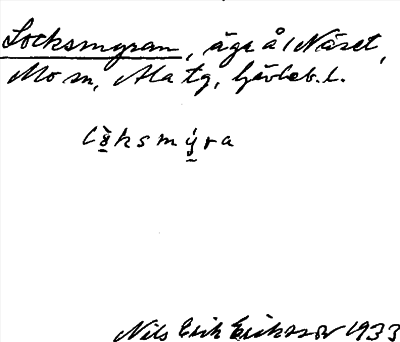 Locksmyran, äga å /Näset,
Mo sn, Ala tg, Gävleb. l.
lå̀ksmýra
Nils Erik Eriksson 1933